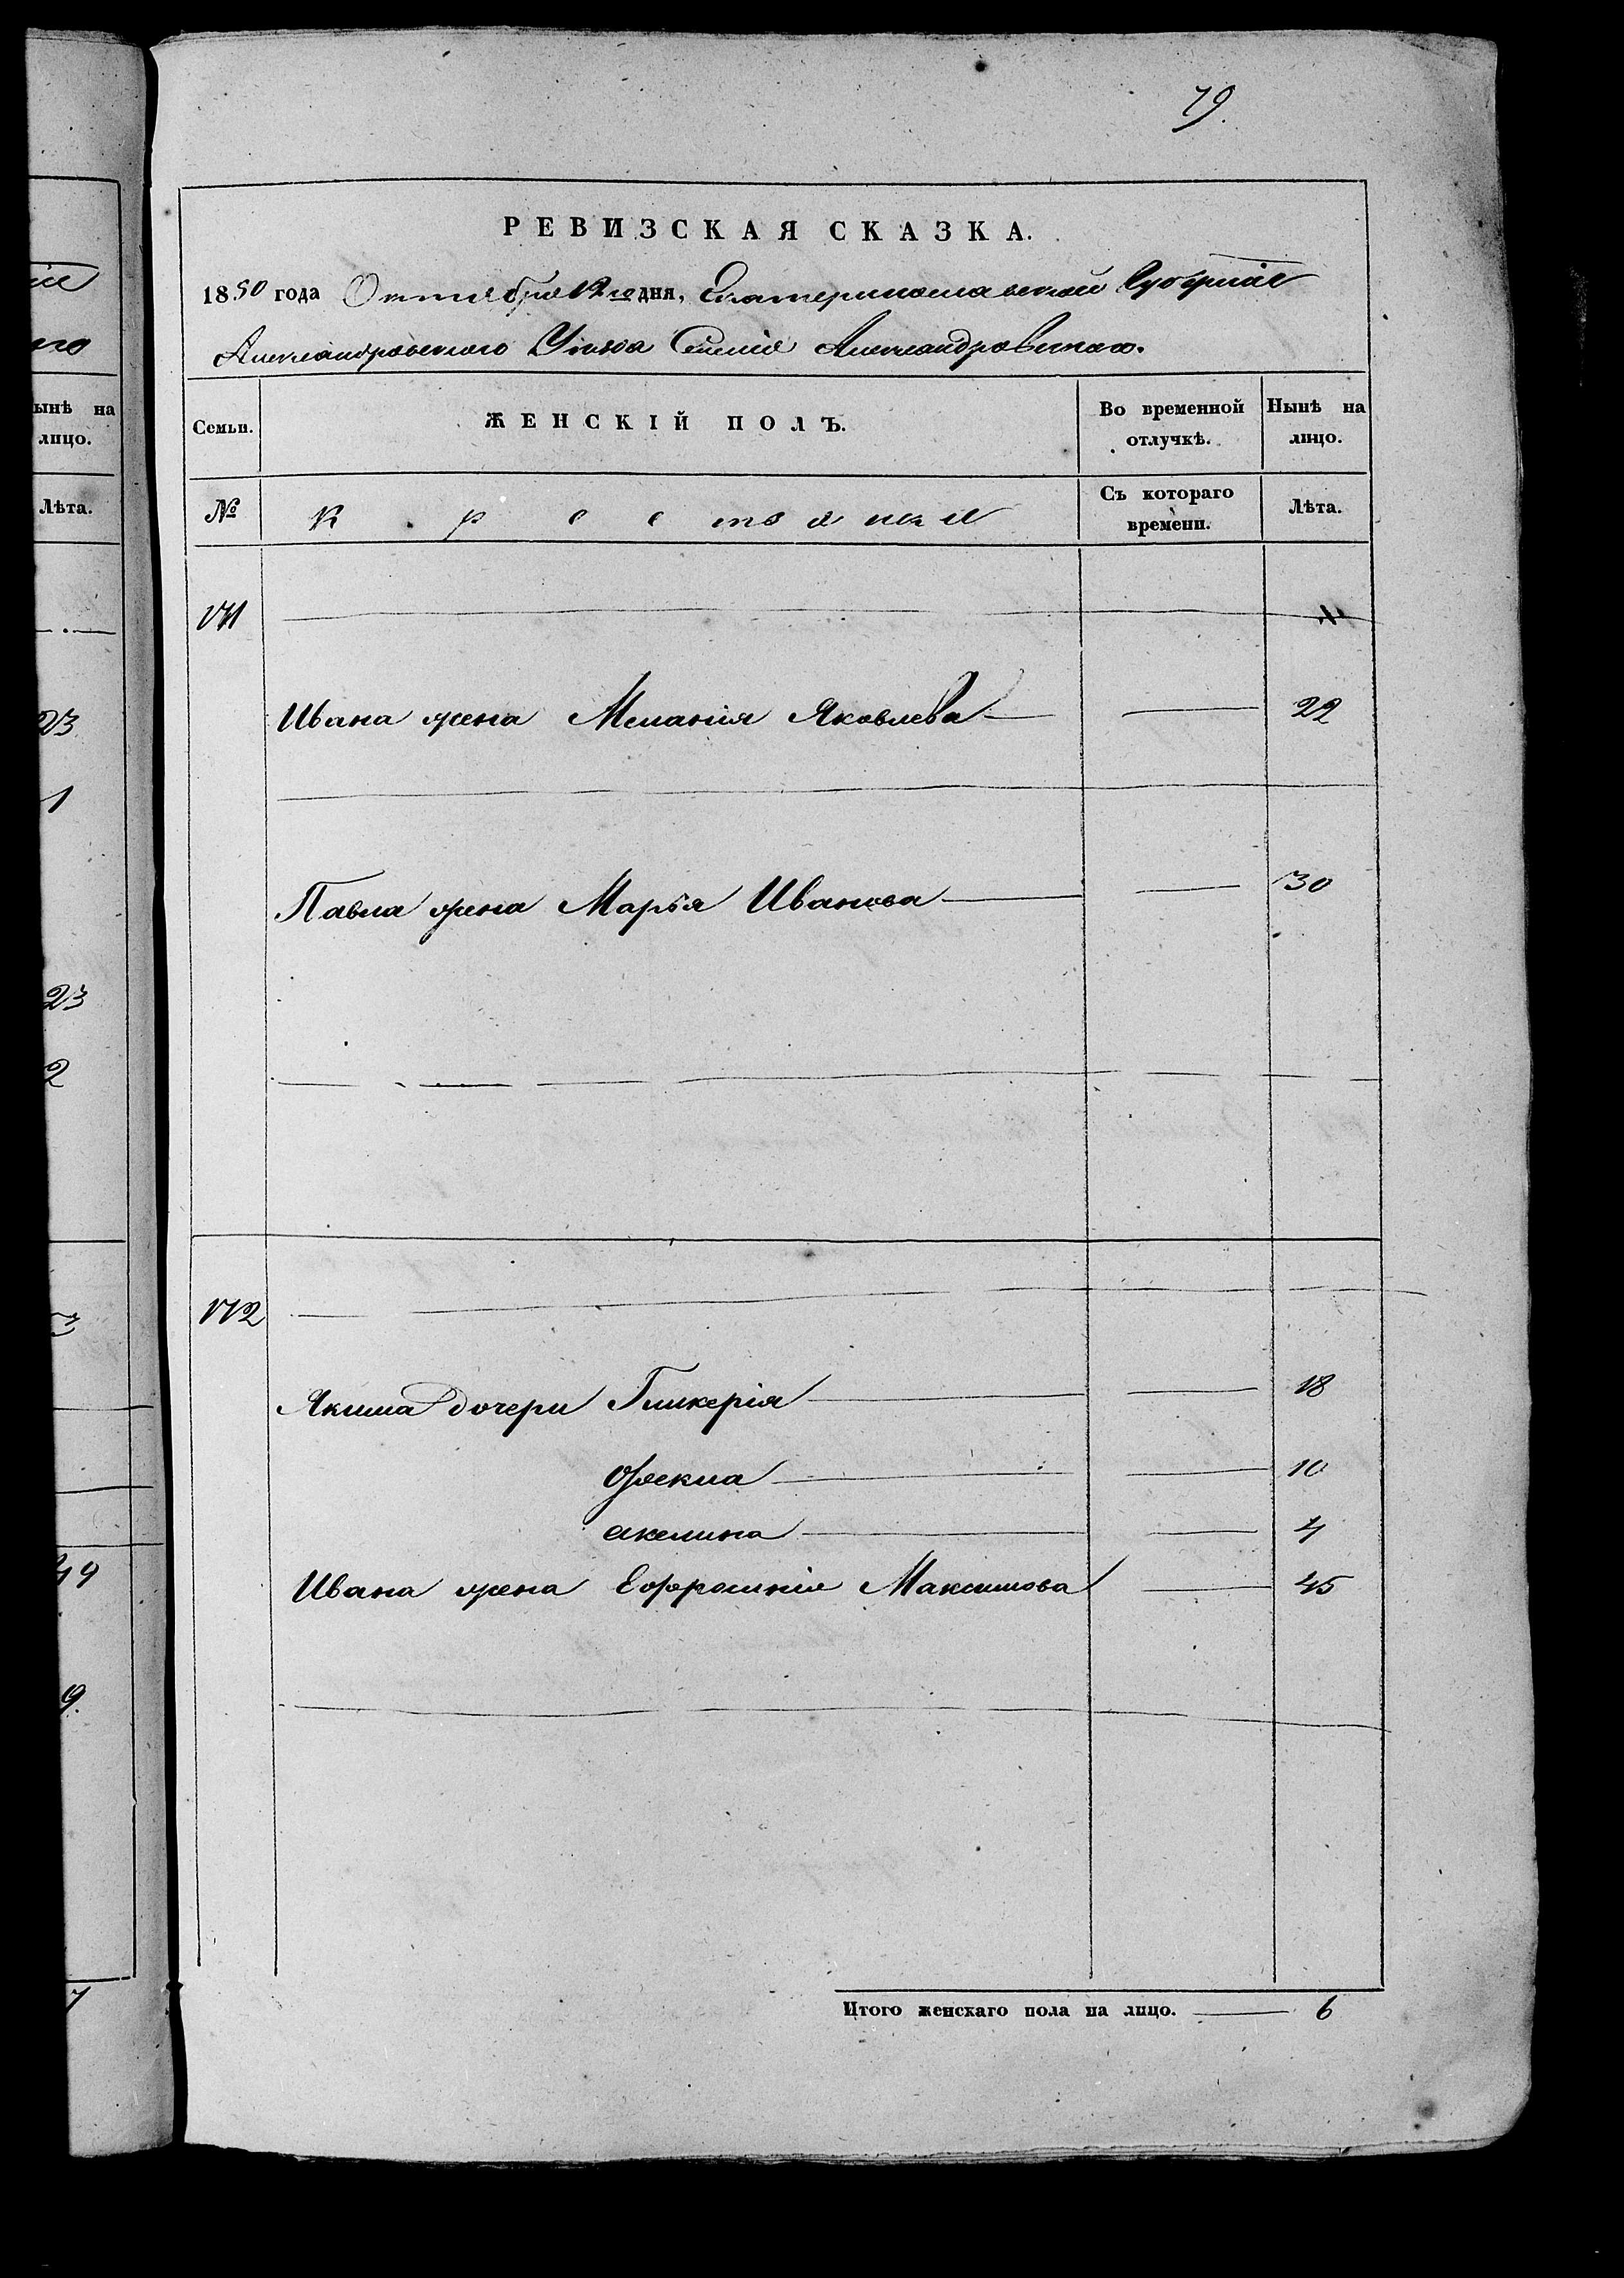 79.
РЕВИЗСКАЯ СКАЗКА.
1850 года Октября 12го дня, Екатеринославской Губерніи
Александровского Уезда Селенія Александровка.
Семьи.
ЖЕНСКІЙ ПОЛЪ.
Во временной отлучкѣ.
Нынѣ на лицо.
№
Крестьянки
Съ котораго времени.
Лѣта.
171
Ивана жена Меланія Яковлева — — 22
Павла жена Марья Иванова — — 30
172
Якима дочери Гликерія — — 18
Фекла — — 10
акелина — — 4
Ивана жена Ефросинія Максимова — 45
Итого женскаго пола на лицо. — 6
ынѣ на
лицо.
Лѣта.
23
1
23
2
9.